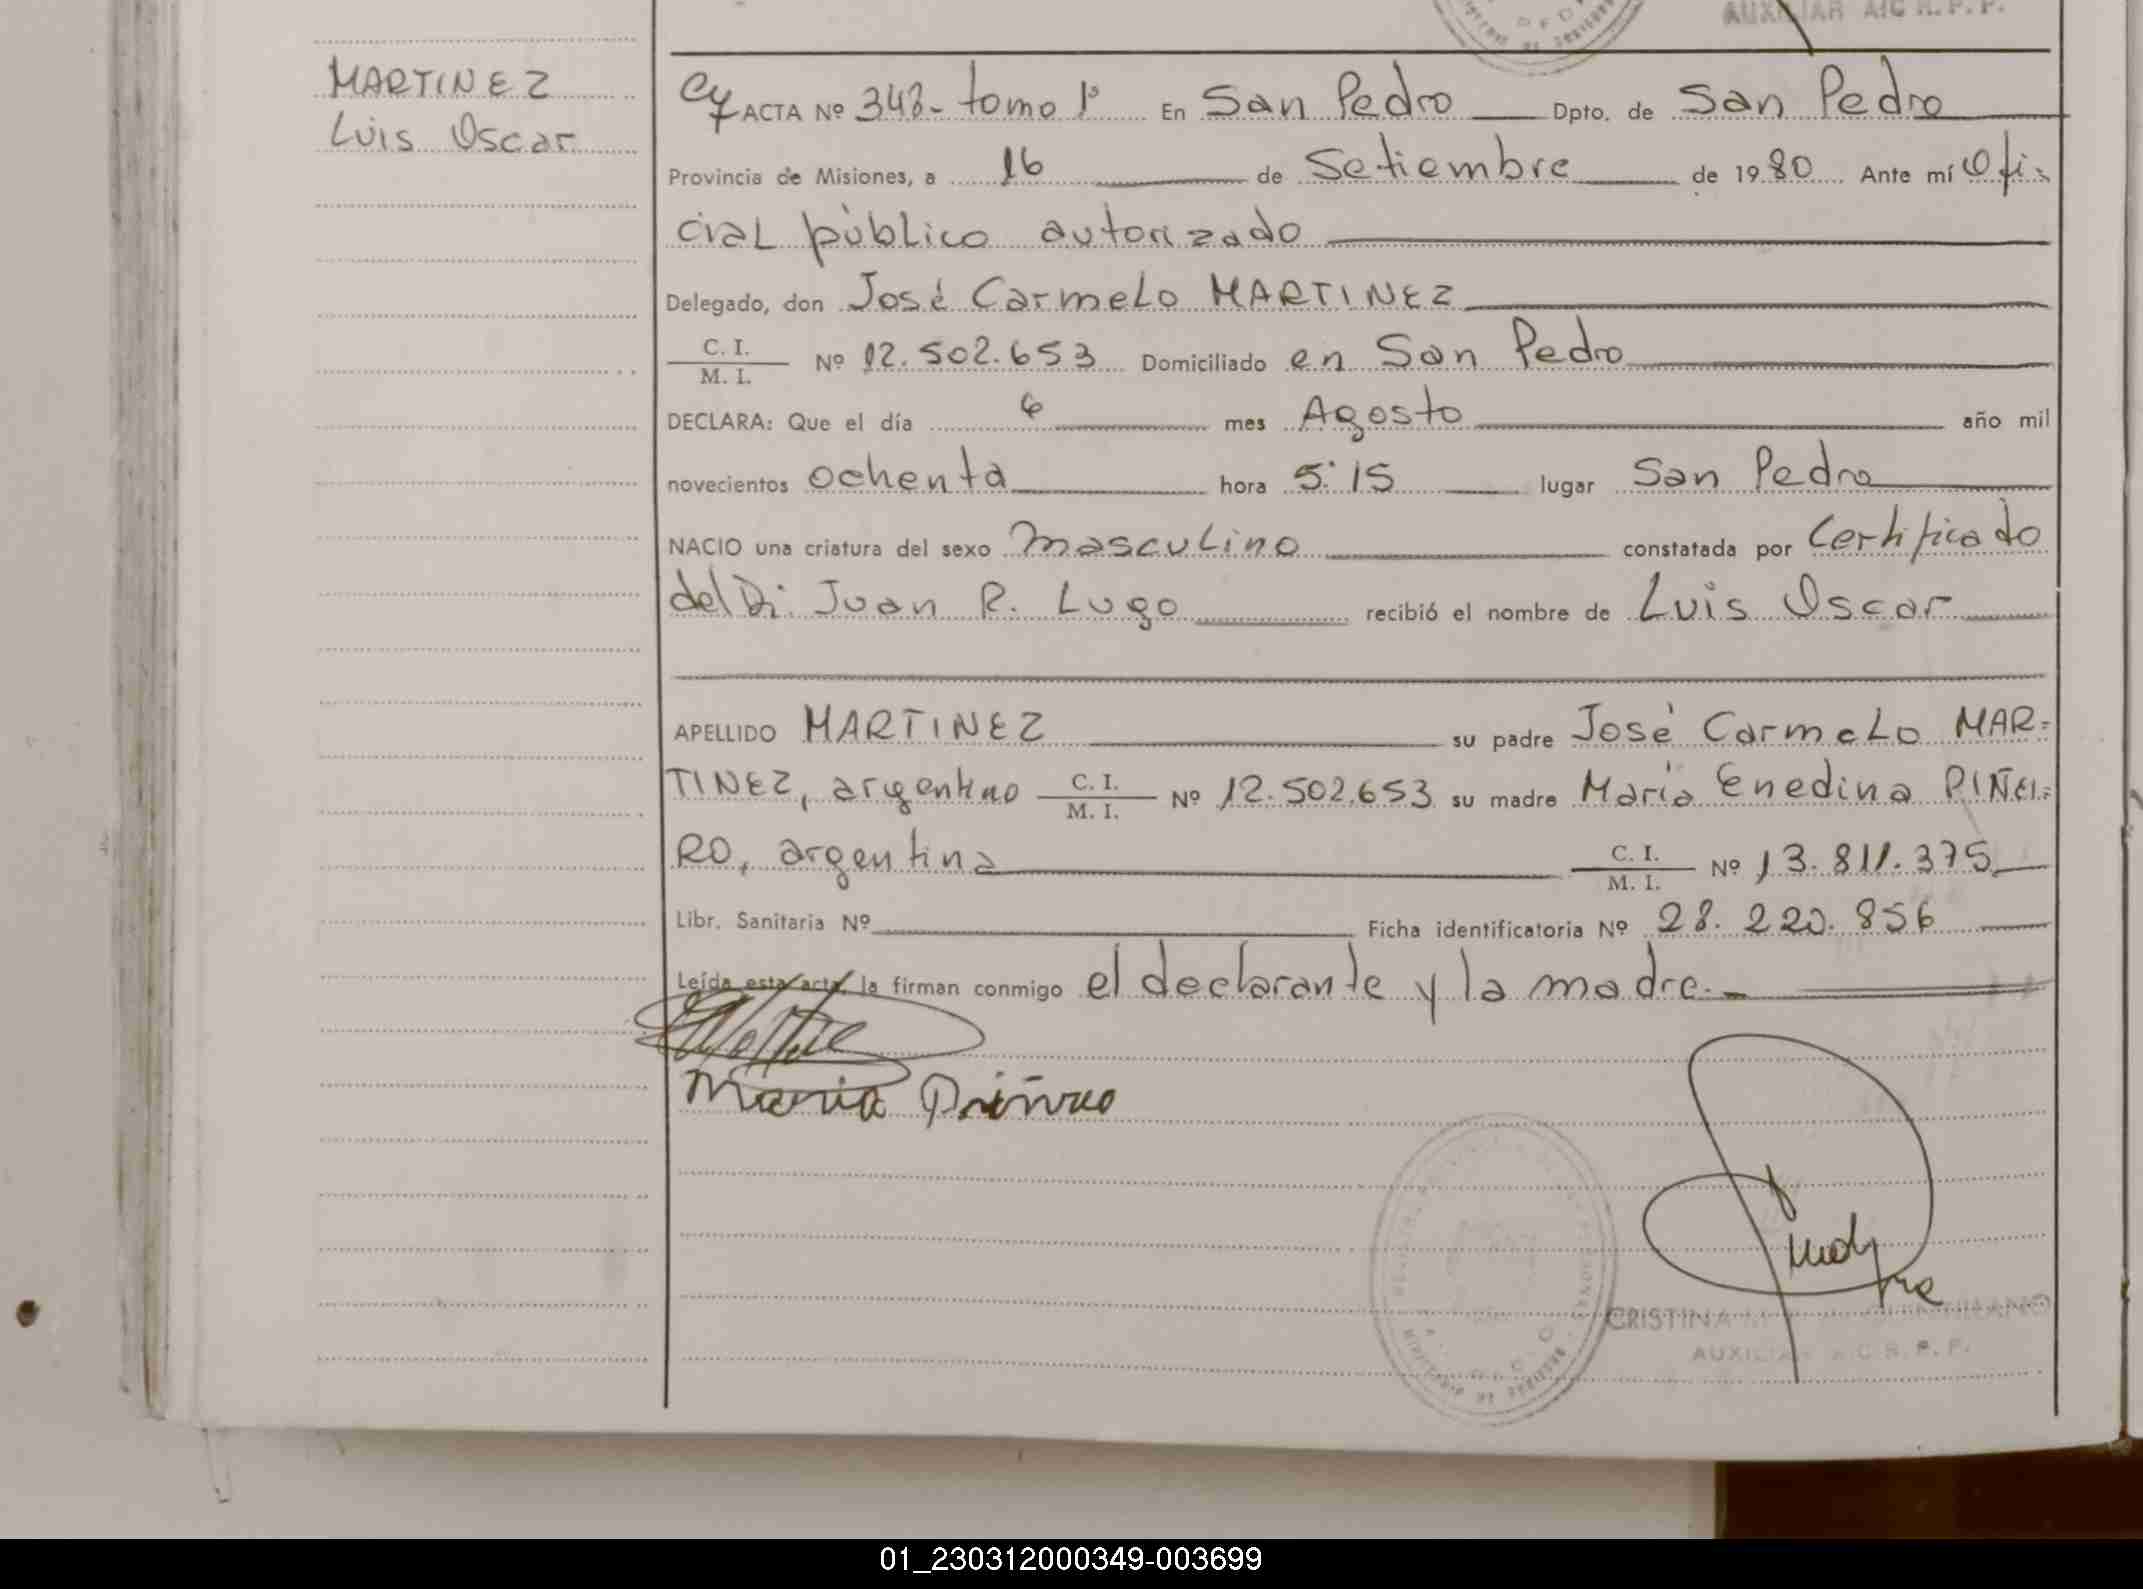 AUXILIAR A/C R. P. P.
MARTINEZ
Luis Oscar
ACTA Nº 348- tomo 1º En San Pedro Dpto. de San Pedro
Provincia de Misiones, a 16 de Setiembre de 1980 Ante mí Ofi-
cial público autorizado
Delegado, don José Carmelo MARTINEZ
C. I. / M. I. Nº 12.502.653 Domiciliado en San Pedro
DECLARA: Que el día 6 mes Agosto año mil
novecientos ochenta hora 5:15 lugar San Pedro
NACIO una criatura del sexo masculino constatada por Certificado
del Dr. Juan R. Lugo recibió el nombre de Luis Oscar
APELLIDO MARTINEZ su padre José Carmelo MAR=
TINEZ, argentino C. I. / M. I. Nº 12.502.653 su madre María Enedina PIÑEI=
RO, argentina C. I. / M. I. Nº 13.811.375
Libr. Sanitaria Nº Ficha identificatoria Nº 28.220.856
Leída esta acta, la firman conmigo el declarante y la madre.-
Maria Piñeiro
CRISTINA
AUXILIAR A/C R. P. P.
01_230312000349-003699